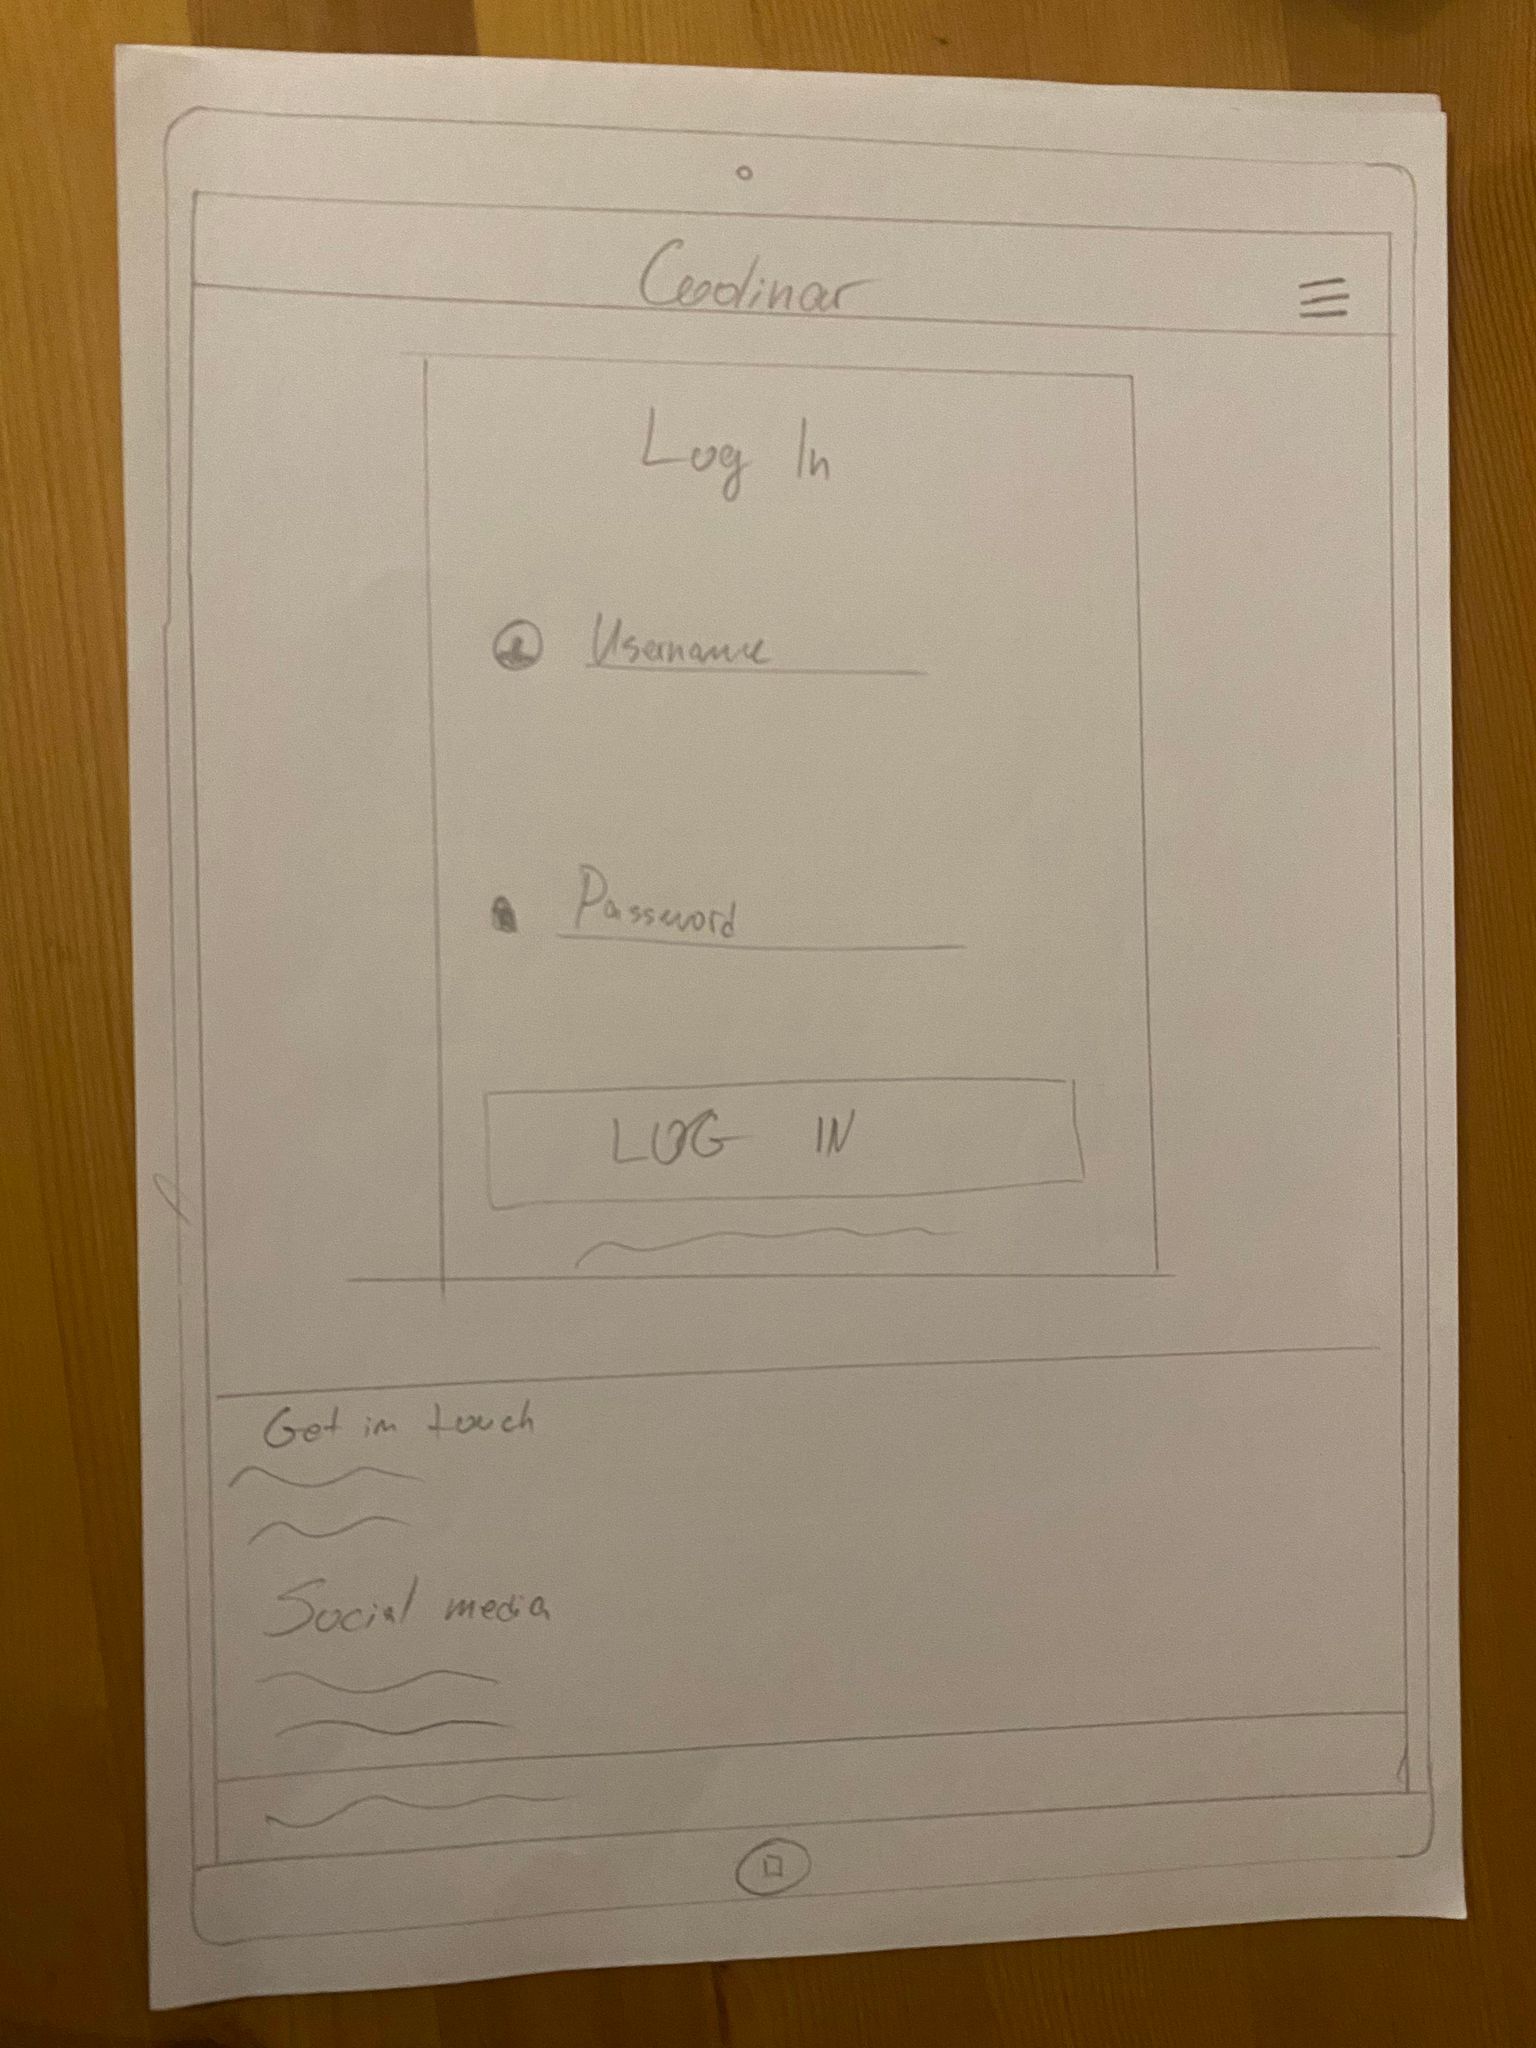 Log In
Username
Password
LOG IN
Get in touch
Social media